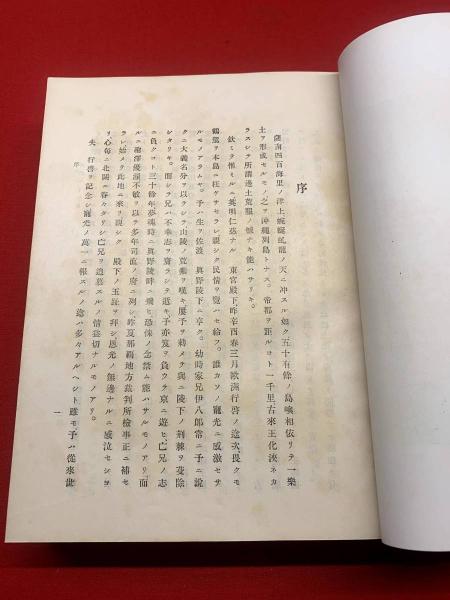 序
薩南四百海里ノ洋上蜿蜒虬龍ノ天ニ冲スル如ク五十有餘ノ島嶼相依リテ一樂
土ヲ形成セルモノ之ヲ沖繩列島トナス。帝都ヲ距ルコト一千里古來王化浹ネカ
ラスシテ所謂邊土荒服ノ憾ナキ能ハサリキ。
欽ミテ惟ミルニ英明仁慈ナル 東宮殿下昨辛酉春三月歐洲行啓ノ迄次、畏クモ
鶴駕ヲ本島ニ枉ケサセラレ親シク民情ヲ覽ハセ給フ。誰カソノ寵光ニ感激セサ
ルモノアラムヤ。予ハ生ヲ佐渡 眞野陵下ニ享ク。幼時家兄伊八郎常ニ予ニ說
クニ大義名分ヲ以ラシテ山陵ノ荒頽ヲ嘆キ屢予ヲ勅メテ與ニ陵下ノ荊棘ヲ芟除
シタリキ。而シテ兄ハ不幸志ヲ齎ラシテ逝キ予亦笈ヲ負ウテ京ニ遊ヒ、亡兄ノ志
ニ負クコト三十餘年夢魂時ニ眞野陵畔ニ飛ヒ恐悚ノ念禁ム能ハサルモノアリ。而
ルニ袍澤優渥不敏ヲ以テ多年司直ノ府ニ列シ昨夏那覇地方裁判所檢事正ニ補セ
ラレ始メテ此地ニ來リ親シク 殿下ノ玉趾ヲ拜シ恩光ノ無邊ナルニ感泣セシヨ
リ、心每ニ北闕ニ眷々タリシ亡兄ヲ追慕スルノ情轉切ナルモノアリ。
夫 行啓ヲ記念シ寵光ノ萬一ニ報スルノ途ハ多々アルヘシト雖モ、予ハ從來此
序
一